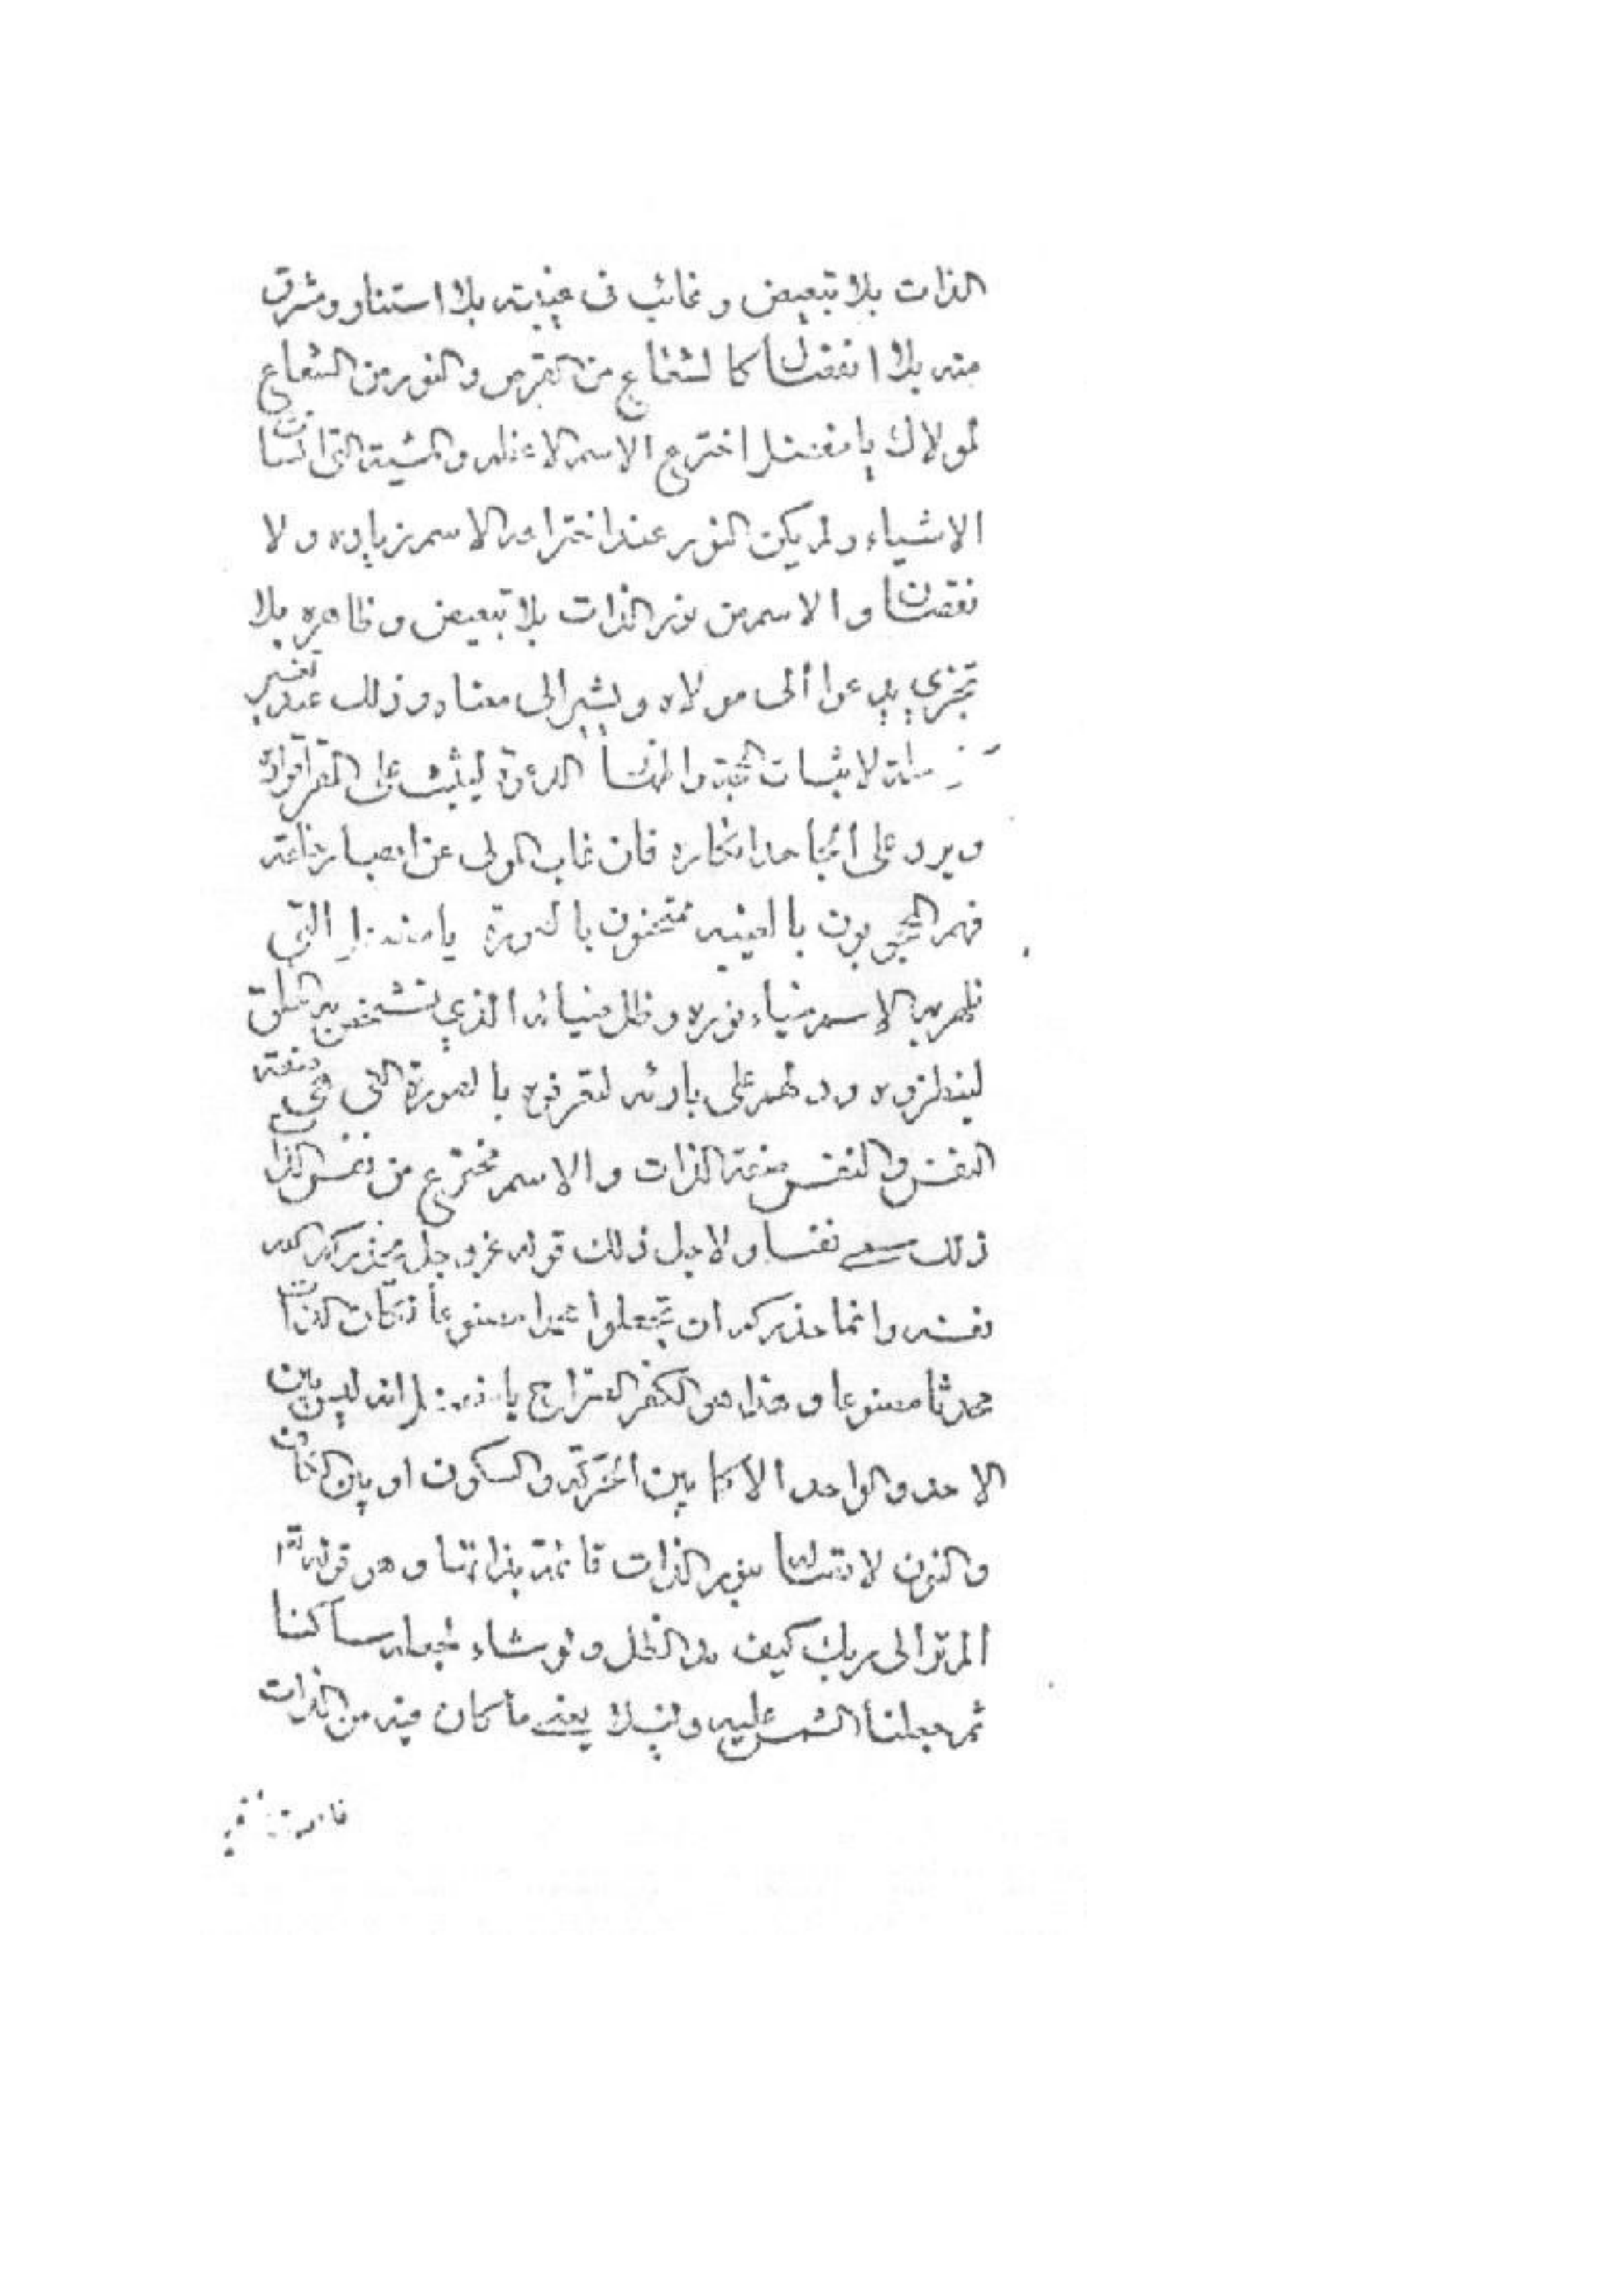 الذات بلا تبعيض و غائب في غيبته بلا استتار و مشرق
منه بلا انفصال كالشعاع من القرص و النور من الشعاع
لمولاك يا مفضل اخترع الاسم الاعظم و المشية التي انشات
الاشياء و لم يكن النور عند اختراعه الاسم زياده و لا
نقصان و الاسم من نور الذات بلا تبعيض و ظاهره بلا
تجزي يدعوا الى مولاه و يشير الى معناه و ذلك عند تغيير
لاثبات الحجة و اظهار الدعوة ليثبت على المقر اقراره
و يرد على الجاحد انكاره فان غاب المولى عن ابصار خلقه
فهم المحجوبون بالغيبه ممتحنون بالصورة يا مفضل التي
ظهر به الاسم ضياء نوره و ظل ضيائه الذي تشخص به الخلق
لينظروه و دلهم على بارئه لتعرفوه بالصورة التي هي صفته
النفس و النفس صفة الذات و الاسم مخترع من نفس الذات
ذلك سمي نفسا و لاجل ذلك قوله عز و جل يحذركم الله
نفسه و انما حذركم ان تجعلوا محمدا مصنوعا فكان الذات
محدثا مصنوعا و هذا هو الكفر الصراح يا مفضل انه ليس بين
الاحد و الواحد الا كما بين الحركة و السكون او بين الكاف
و النون لاتصاله بنور الذات قائمة بذاتها و هو قوله تعا
الم تر الى ربك كيف مد الظل و لو شاء لجعله ساكنا
ثم جعلنا الشمس عليه دليلا يعني ما كان فيه من الذات